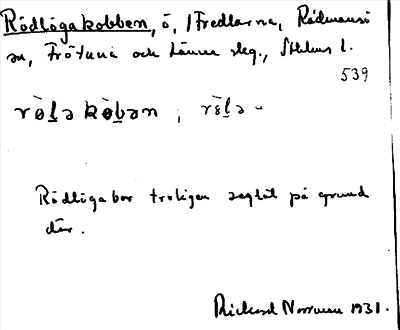 Rödlöga kobben, ö, i Fredlarna, Rådmansö
sn, Frötuna och Länna skg., Sthlms l.
539
rö̀lə kòbən ; rö̀lə -
Rödlögabor troligen seglat på grund
där.
Rickard Norrman 1931.